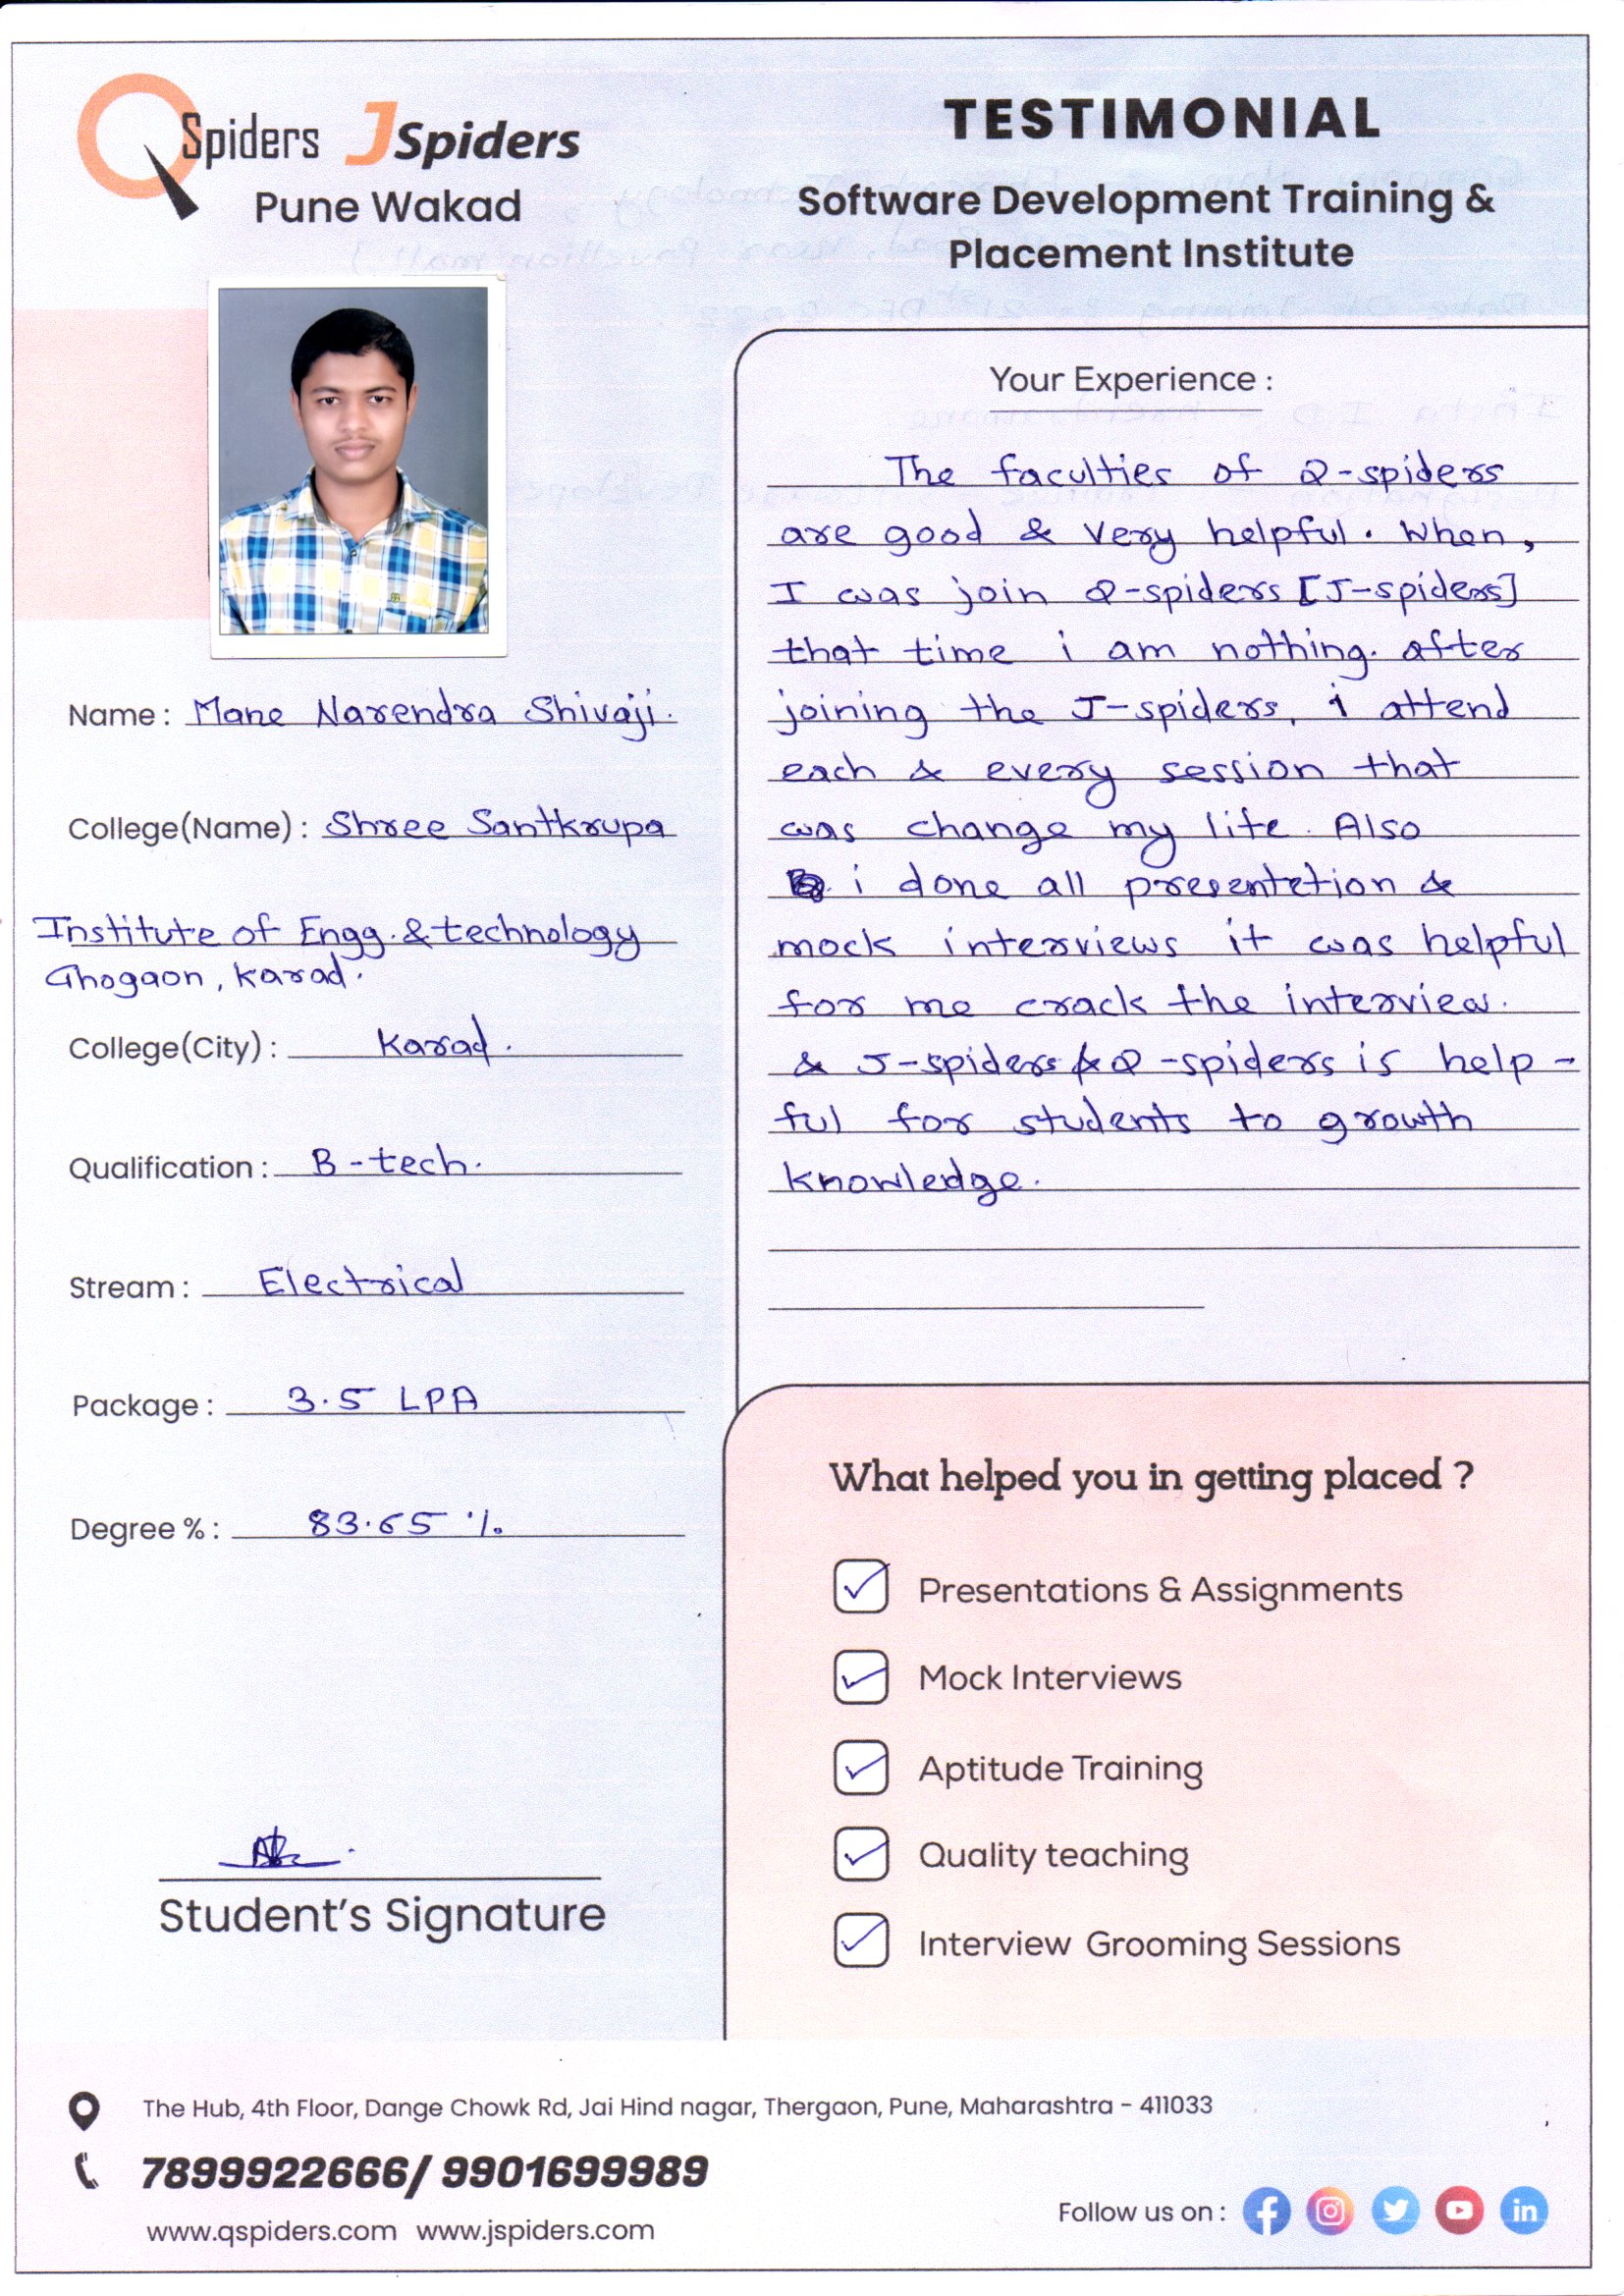 QSpiders JSpiders
Pune Wakad
TESTIMONIAL
Software Development Training &
Placement Institute
Name : Mane Narendra Shivaji.
College(Name) : Shree Santkrupa
Institute of Engg. & technology
Ghogaon, Karad.
College(City) : Karad.
Qualification : B-tech.
Stream : Electrical
Package : 3.5 LPA
Degree % : 83.65 %
Student's Signature
Your Experience :
The faculties of Q-spiders
are good & very helpful. When,
I was join Q-spiders [J-spiders]
that time i am nothing. after
joining the J-spiders, i attend
each & every session that
was change my life. Also
i done all presentetion &
mock interviews it was helpful
for me crack the interview.
& J-spiders & Q-spiders is help-
ful for students to growth
knowledge.
What helped you in getting placed ?
Presentations & Assignments
Mock Interviews
Aptitude Training
Quality teaching
Interview Grooming Sessions
The Hub, 4th Floor, Dange Chowk Rd, Jai Hind nagar, Thergaon, Pune, Maharashtra - 411033
7899922666/ 9901699989
www.qspiders.com www.jspiders.com
Follow us on :